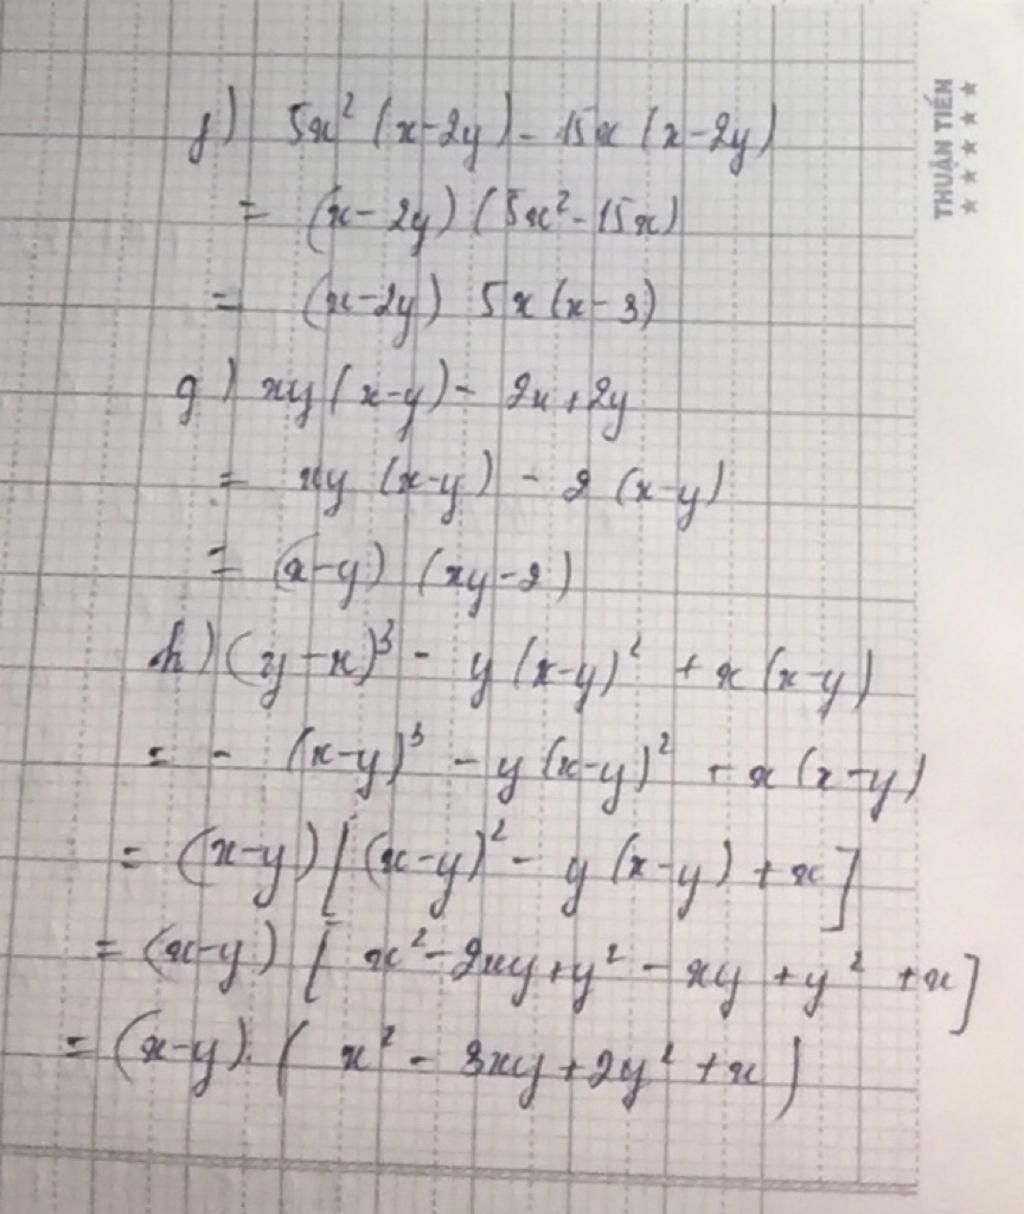 f) 5x² (x-2y) - 15x (x-2y)
= (x-2y) (5x² - 15x)
= (x-2y) 5x (x-3)
g) xy (x-y) - 2x + 2y
= xy (x-y) - 2 (x-y)
= (x-y) (xy-2)
h) (y-x)³ - y (x-y)² + x (x-y)
= - (x-y)³ - y (x-y)² + x (x-y)
= (x-y) [ (x-y)² - y (x-y) + x ]
= (x-y) [ x² - 2xy + y² - xy + y² + x ]
= (x-y). ( x² - 3xy + 2y² + x )
THUẬN TIẾN